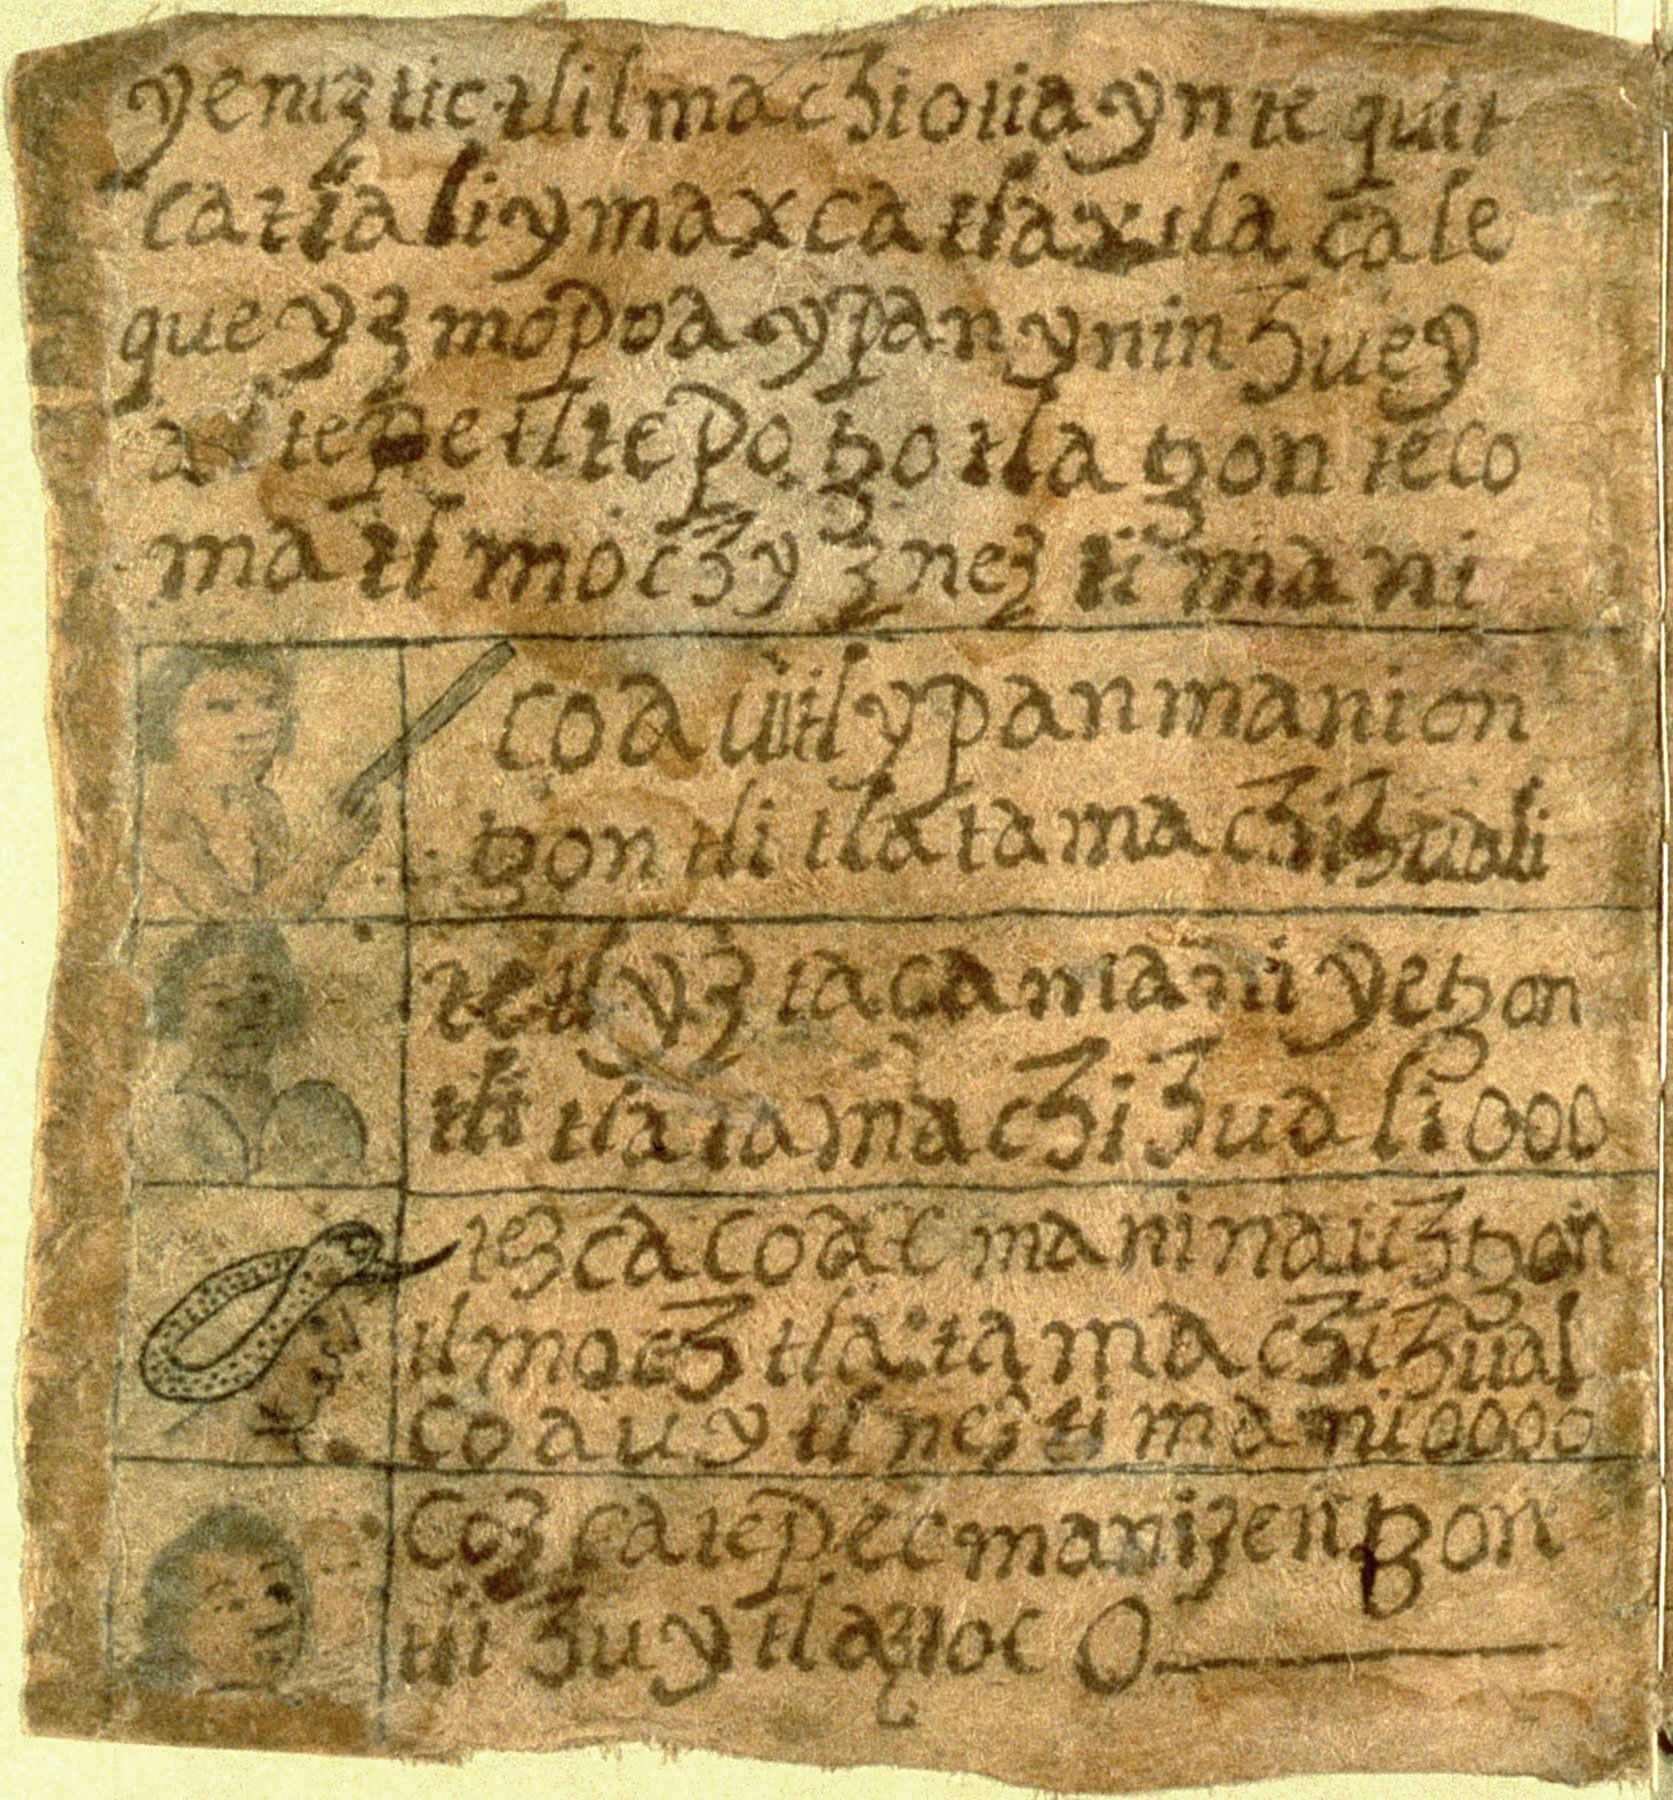 yeniz tic tlil machiotia yn te quit
catlali y maxca tlaxila cale
que yz mopoa ypan ynin huey
altepetl tepotzotla tzonteco
matl mochy z nez ti mani
coauitl ypan mani on
tzontli tlatamachihuali
tetl yztaca mani yetzon
tli tlatamachihuali 000
tezcacoac mani nauhtzon
tl moch tlatamachihual
coauytl nezti mani 0000
cozcatepec mani zentzon
tli huytlaztoc O